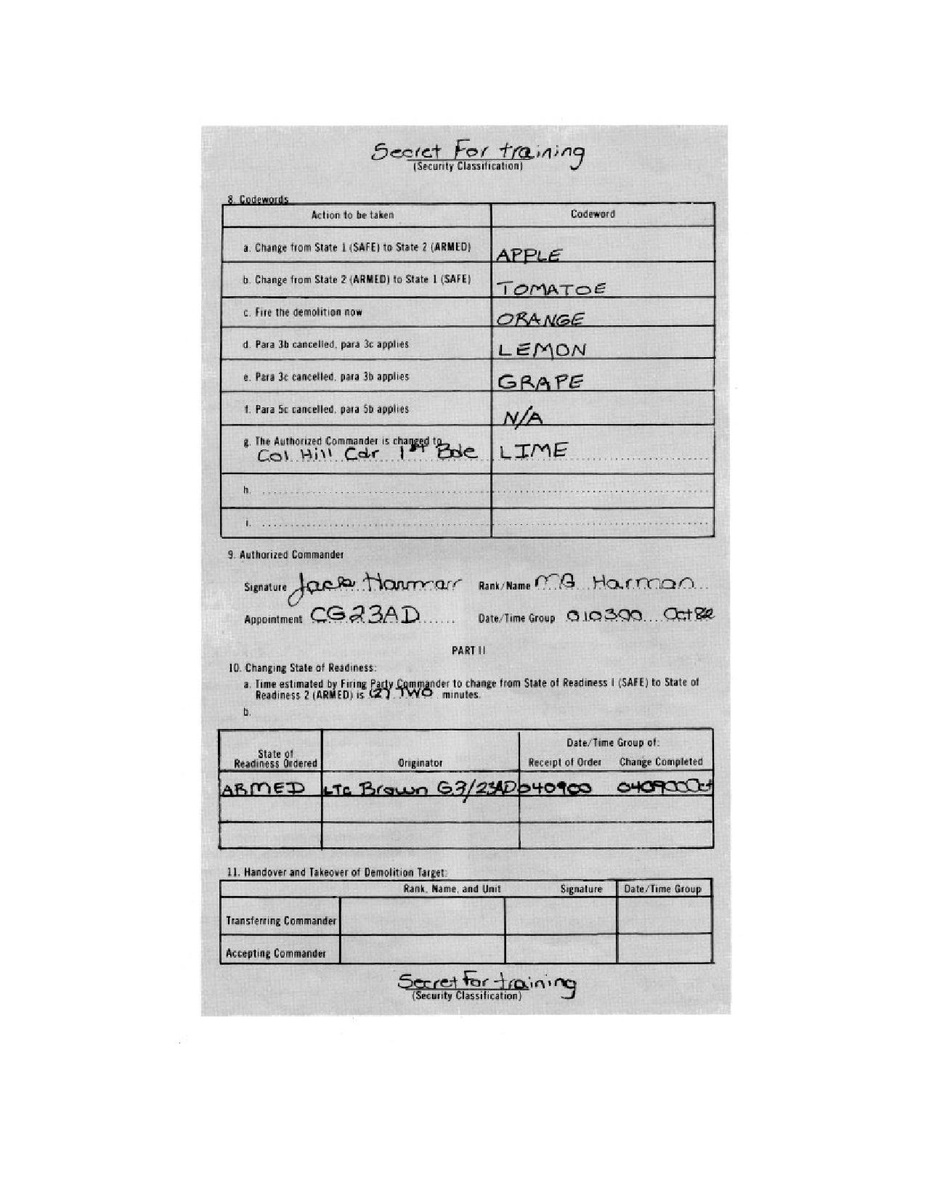 Secret For training
(Security Classification)
8. Codewords
Action to be taken Codeword
a. Change from State 1 (SAFE) to State 2 (ARMED) APPLE
b. Change from State 2 (ARMED) to State 1 (SAFE) TOMATOE
c. Fire the demolition now ORANGE
d. Para 3b cancelled, para 3c applies LEMON
e. Para 3c cancelled, para 3b applies GRAPE
f. Para 5c cancelled, para 5b applies N/A
g. The Authorized Commander is changed to
Col Hill Cdr 1st Bde LIME
h.
i.
9. Authorized Commander
Signature Jack Harman Rank/Name MG Harman
Appointment CG23AD Date/Time Group 010300 Oct
PART II
10. Changing State of Readiness:
a. Time estimated by Firing Party Commander to change from State of Readiness 1 (SAFE) to State of
Readiness 2 (ARMED) is (2) TWO minutes.
b.
Date/Time Group of:
State of
Readiness Ordered Originator Receipt of Order Change Completed
ARMED LTC Brown G3/23AD 040900 Oct
11. Handover and Takeover of Demolition Target:
Rank, Name, and Unit Signature Date/Time Group
Transferring Commander
Accepting Commander
Secret For training
(Security Classification)